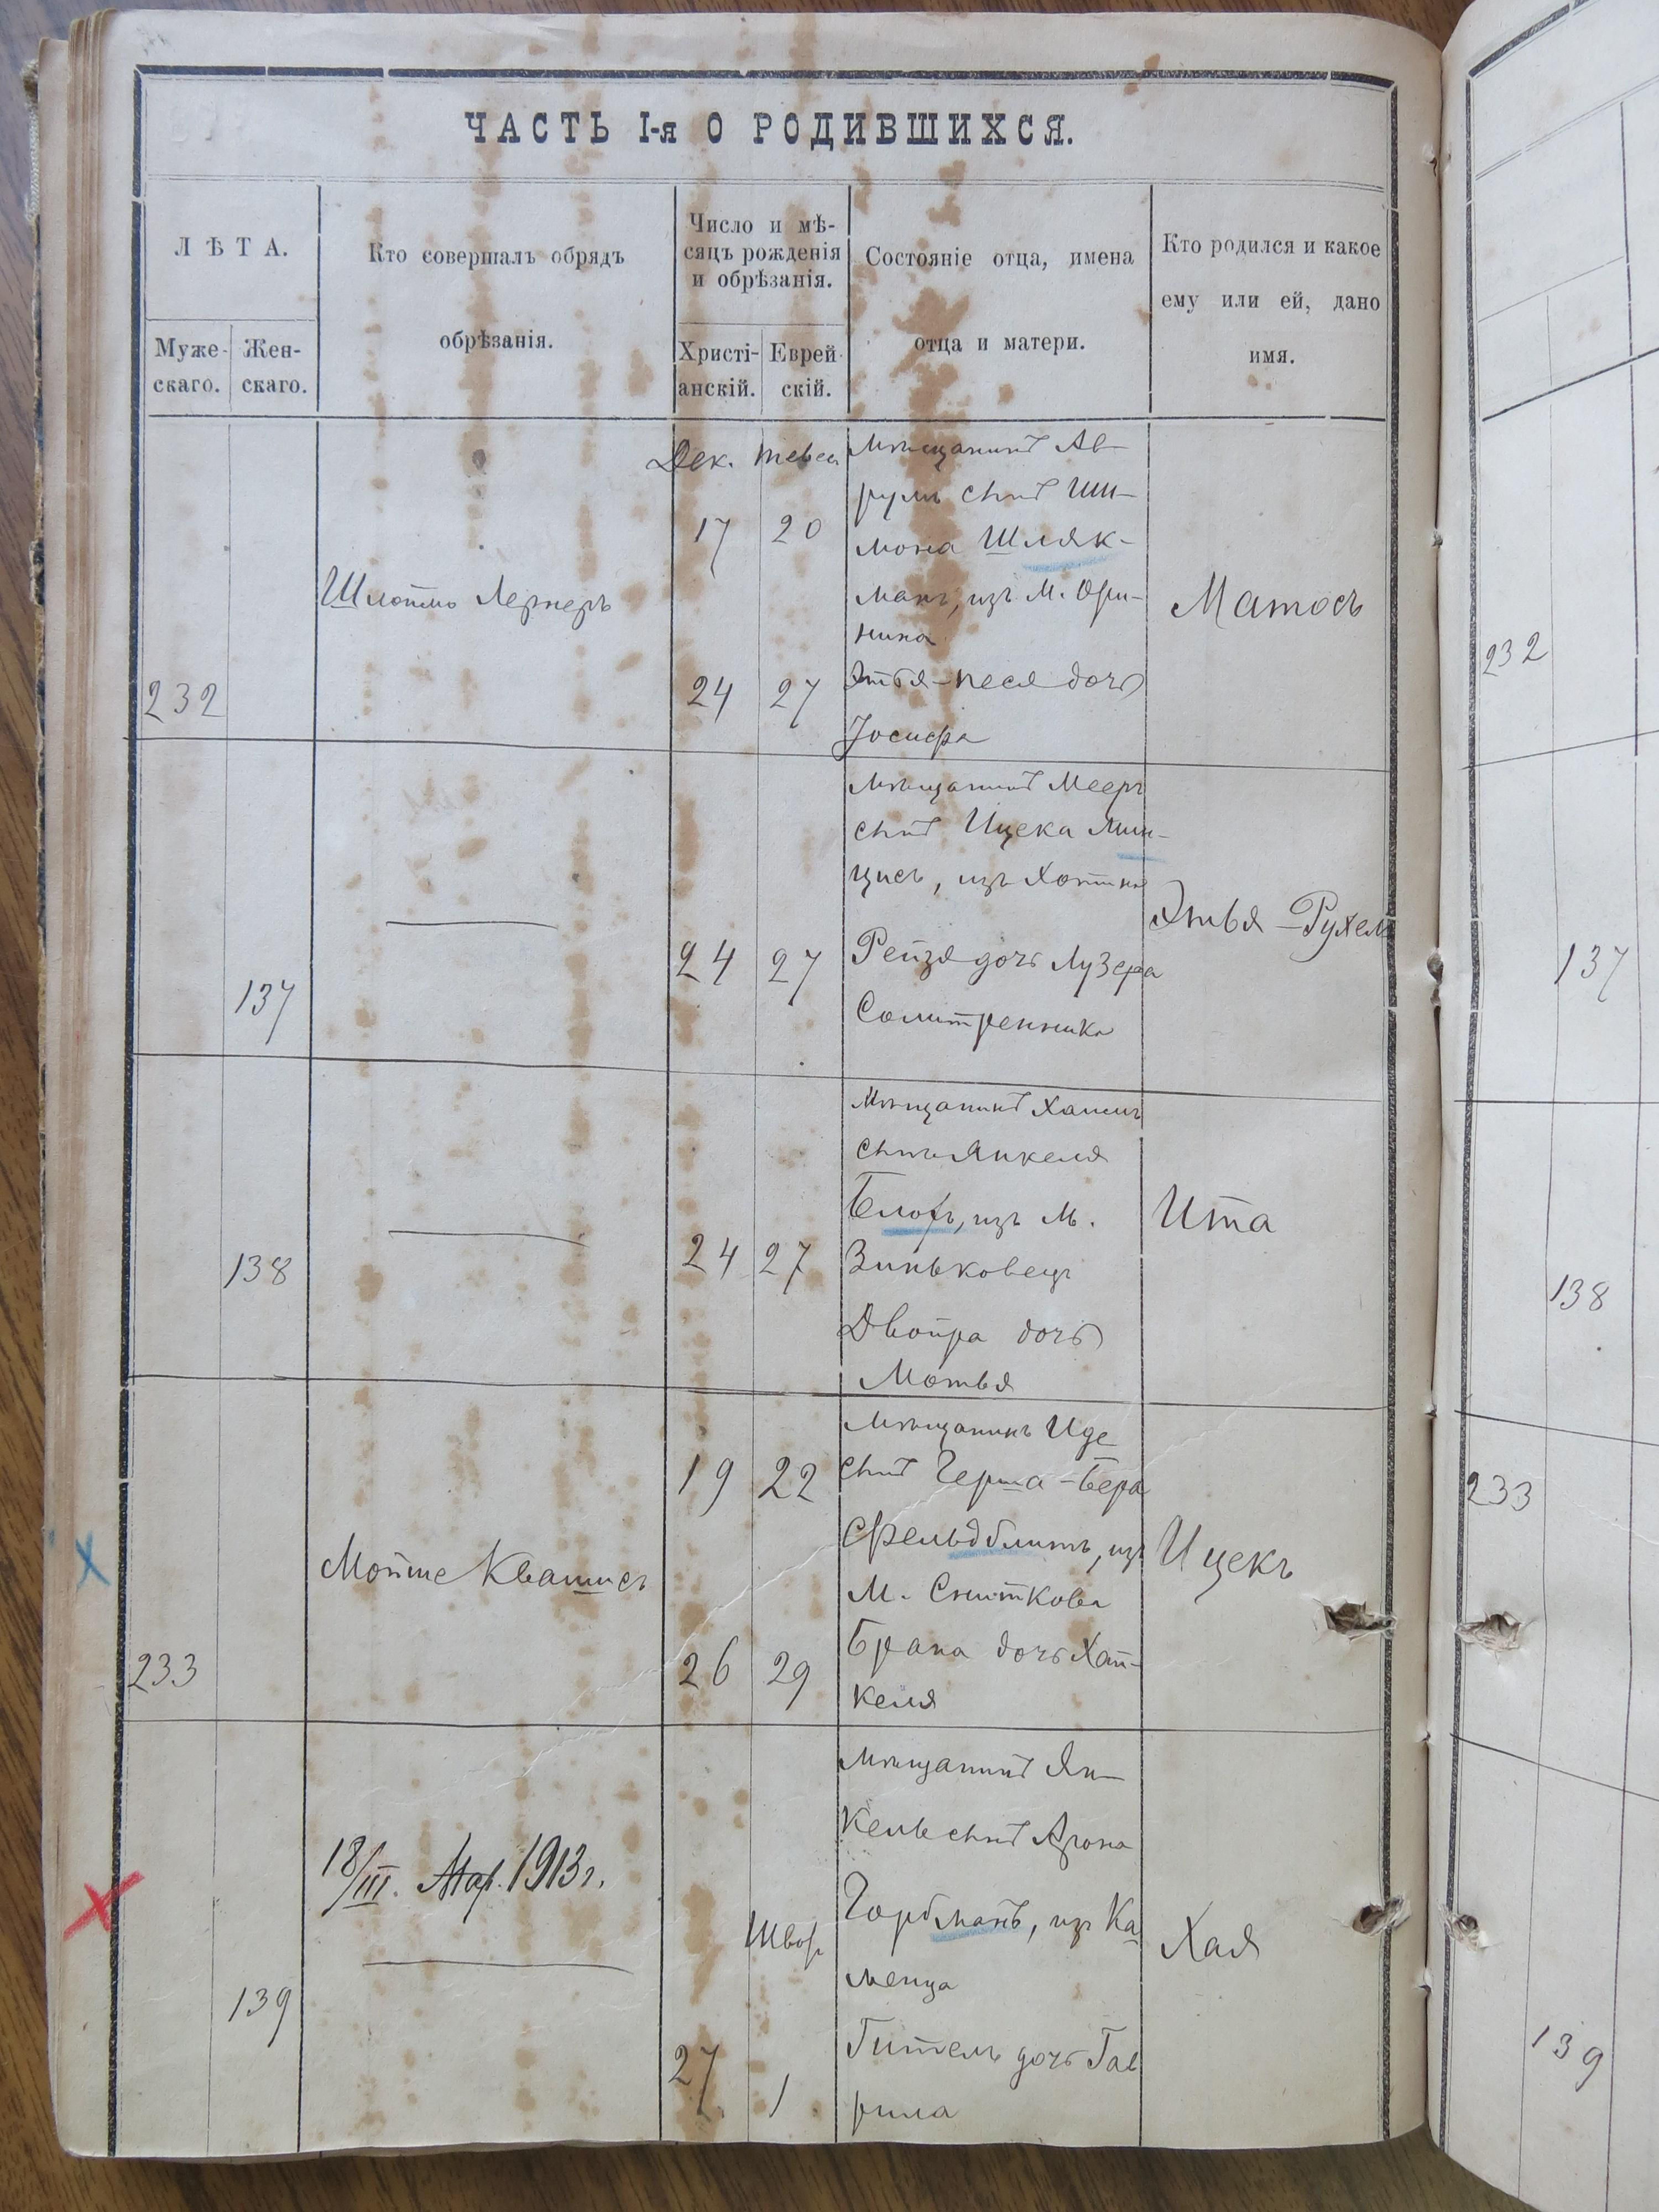 ЧАСТЬ I-я О РОДИВШИХСЯ.
ЛѢТА.
Муже-
скаго.
Жен-
скаго.
Кто совершалъ обрядъ
обрѣзанія.
Число и мѣ-
сяцъ рожденія
и обрѣзанія.
Христі-
анскій.
Еврей-
скій.
Состояніе отца, имена
отца и матери.
Кто родился и какое
ему или ей, дано
имя.
232
Шлойма Лернеръ
Дек. Тевеѳ
17 20
24 27
Мѣщанинъ Ав-
румъ сынъ Ши-
мона Шляк-
манъ, изъ м. Ори-
нина
Этья-Песя дочь
Іосифа
Матосъ
232
137
24 27
Мѣщанинъ Мееръ
сынъ Ицека Мин-
цисъ, изъ Хотина
Рейзя дочь Лузера
Солитренника
Этья-Рухель
137
138
24 27
Мѣщанинъ Хаимъ
сынъ Янкеля
Блохъ, изъ м.
Зиньковецъ
Двойра дочь
Мотья
Ита
138
233
Мойше Квашисъ
19 22
26 29
Мѣщанинъ Иде
сынъ Герша-Бера
Фельдблитъ, изъ
м. Сниткова
Брана дочь Хай-
келя
Ицекъ
233
139
18/III. Мар. 1913 г.
Швотъ
27 1
Мѣщанинъ Ян-
кель сынъ Арона
Горбманъ, изъ Ка-
менца
Гитель дочь Гав
рила
Хая
139